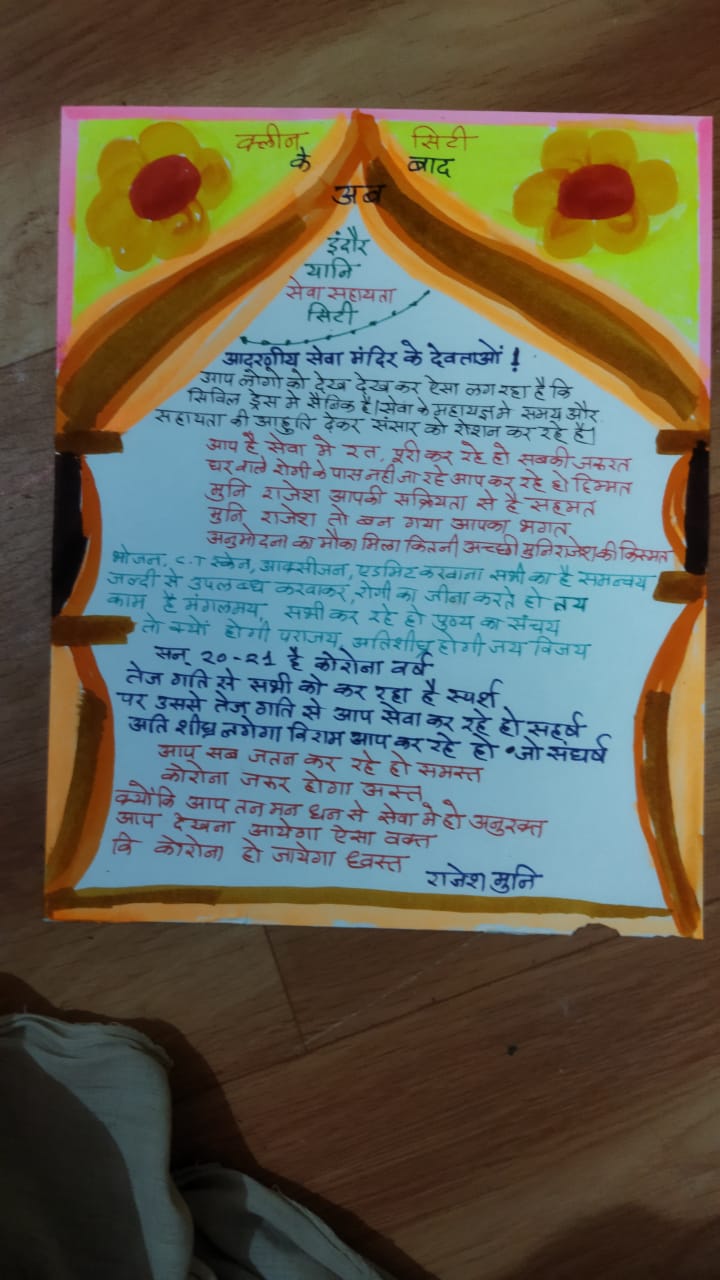 क्लीन सिटी
के बाद
अब
इंदौर
यानि
सेवा सहायता
सिटी
आदरणीय सेवा मंदिर के देवताओं !
आप लोगो को देख देख कर ऐसा लग रहा है कि
सिविल ड्रेस मे सैनिक है। सेवा के महायज्ञ मे समय और
सहायता की आहुति देकर संसार को रोशन कर रहे है।
आप है सेवा मे रत, पूरी कर रहे हो सबकी जरूरत
घर वाले रोगी के पास नही जा रहे आप कर रहे हो हिम्मत
मुनि राजेश आपकी सक्रियता से है सहमत
मुनि राजेश तो बन गया आपका भगत
अनुमोदना का मौका मिला कितनी अच्छी मुनि राजेश की किस्मत
भोजन, C.T स्केन, आक्सीजन, एडमिट करवाना सभी का है समन्वय
जल्दी से उपलब्ध करवाकर, रोगी का जीना करते हो तय
काम है मंगलमय, सभी कर रहे हो पुण्य का संचय
तो क्यों होगी पराजय, अतिशीघ्र होगी जय विजय
सन् 20-21 है कोरोना वर्ष
तेज गति से सभी को कर रहा है स्पर्श
पर उससे तेज गति से आप सेवा कर रहे हो सहर्ष
अति शीघ्र लगेगा विराम आप कर रहे हो जो संघर्ष
आप सब जतन कर रहे हो समस्त
कोरोना जरूर होगा अस्त
क्योंकि आप तन मन धन से सेवा मे हो अनुरक्त
आप देखना आयेगा ऐसा वक्त
कि कोरोना हो जायेगा ध्वस्त
राजेश मुनि